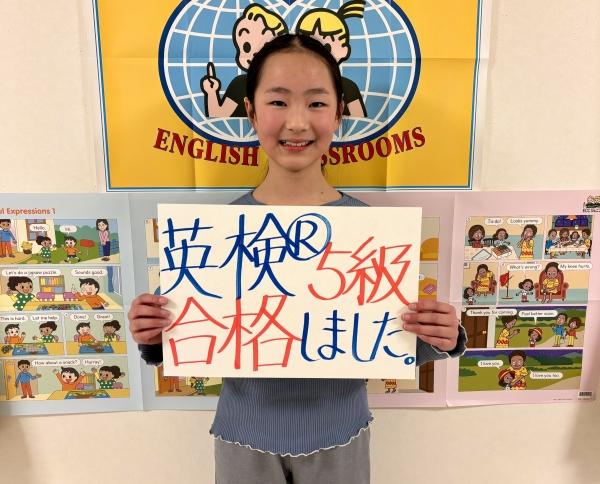 ENGLISH
英検®5級
合格しました。
Hello.
Hi.
Let's do a jigsaw puzzle.
Sounds good.
This is hard.
Let me help.
Done!
Great!
How about a snack?
Hurray!
Ta-da!
Looks yummy.
What's wrong?
My knee hurts.
Thank you for coming.
Feel better soon.
I love you.
I love you too.